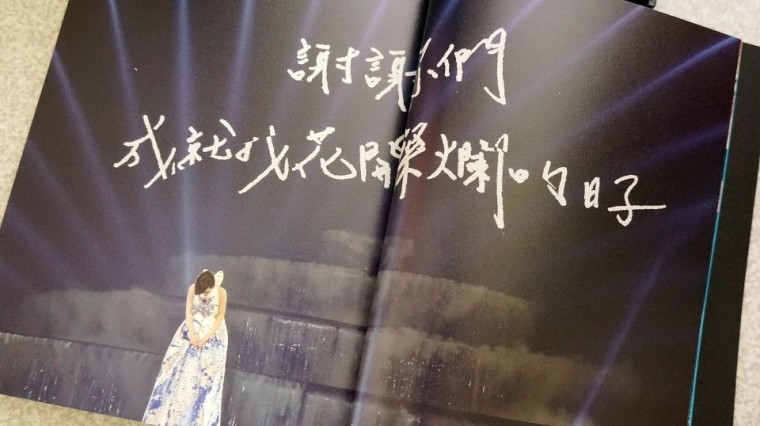 謝謝你們
成就我花開燦爛的日子